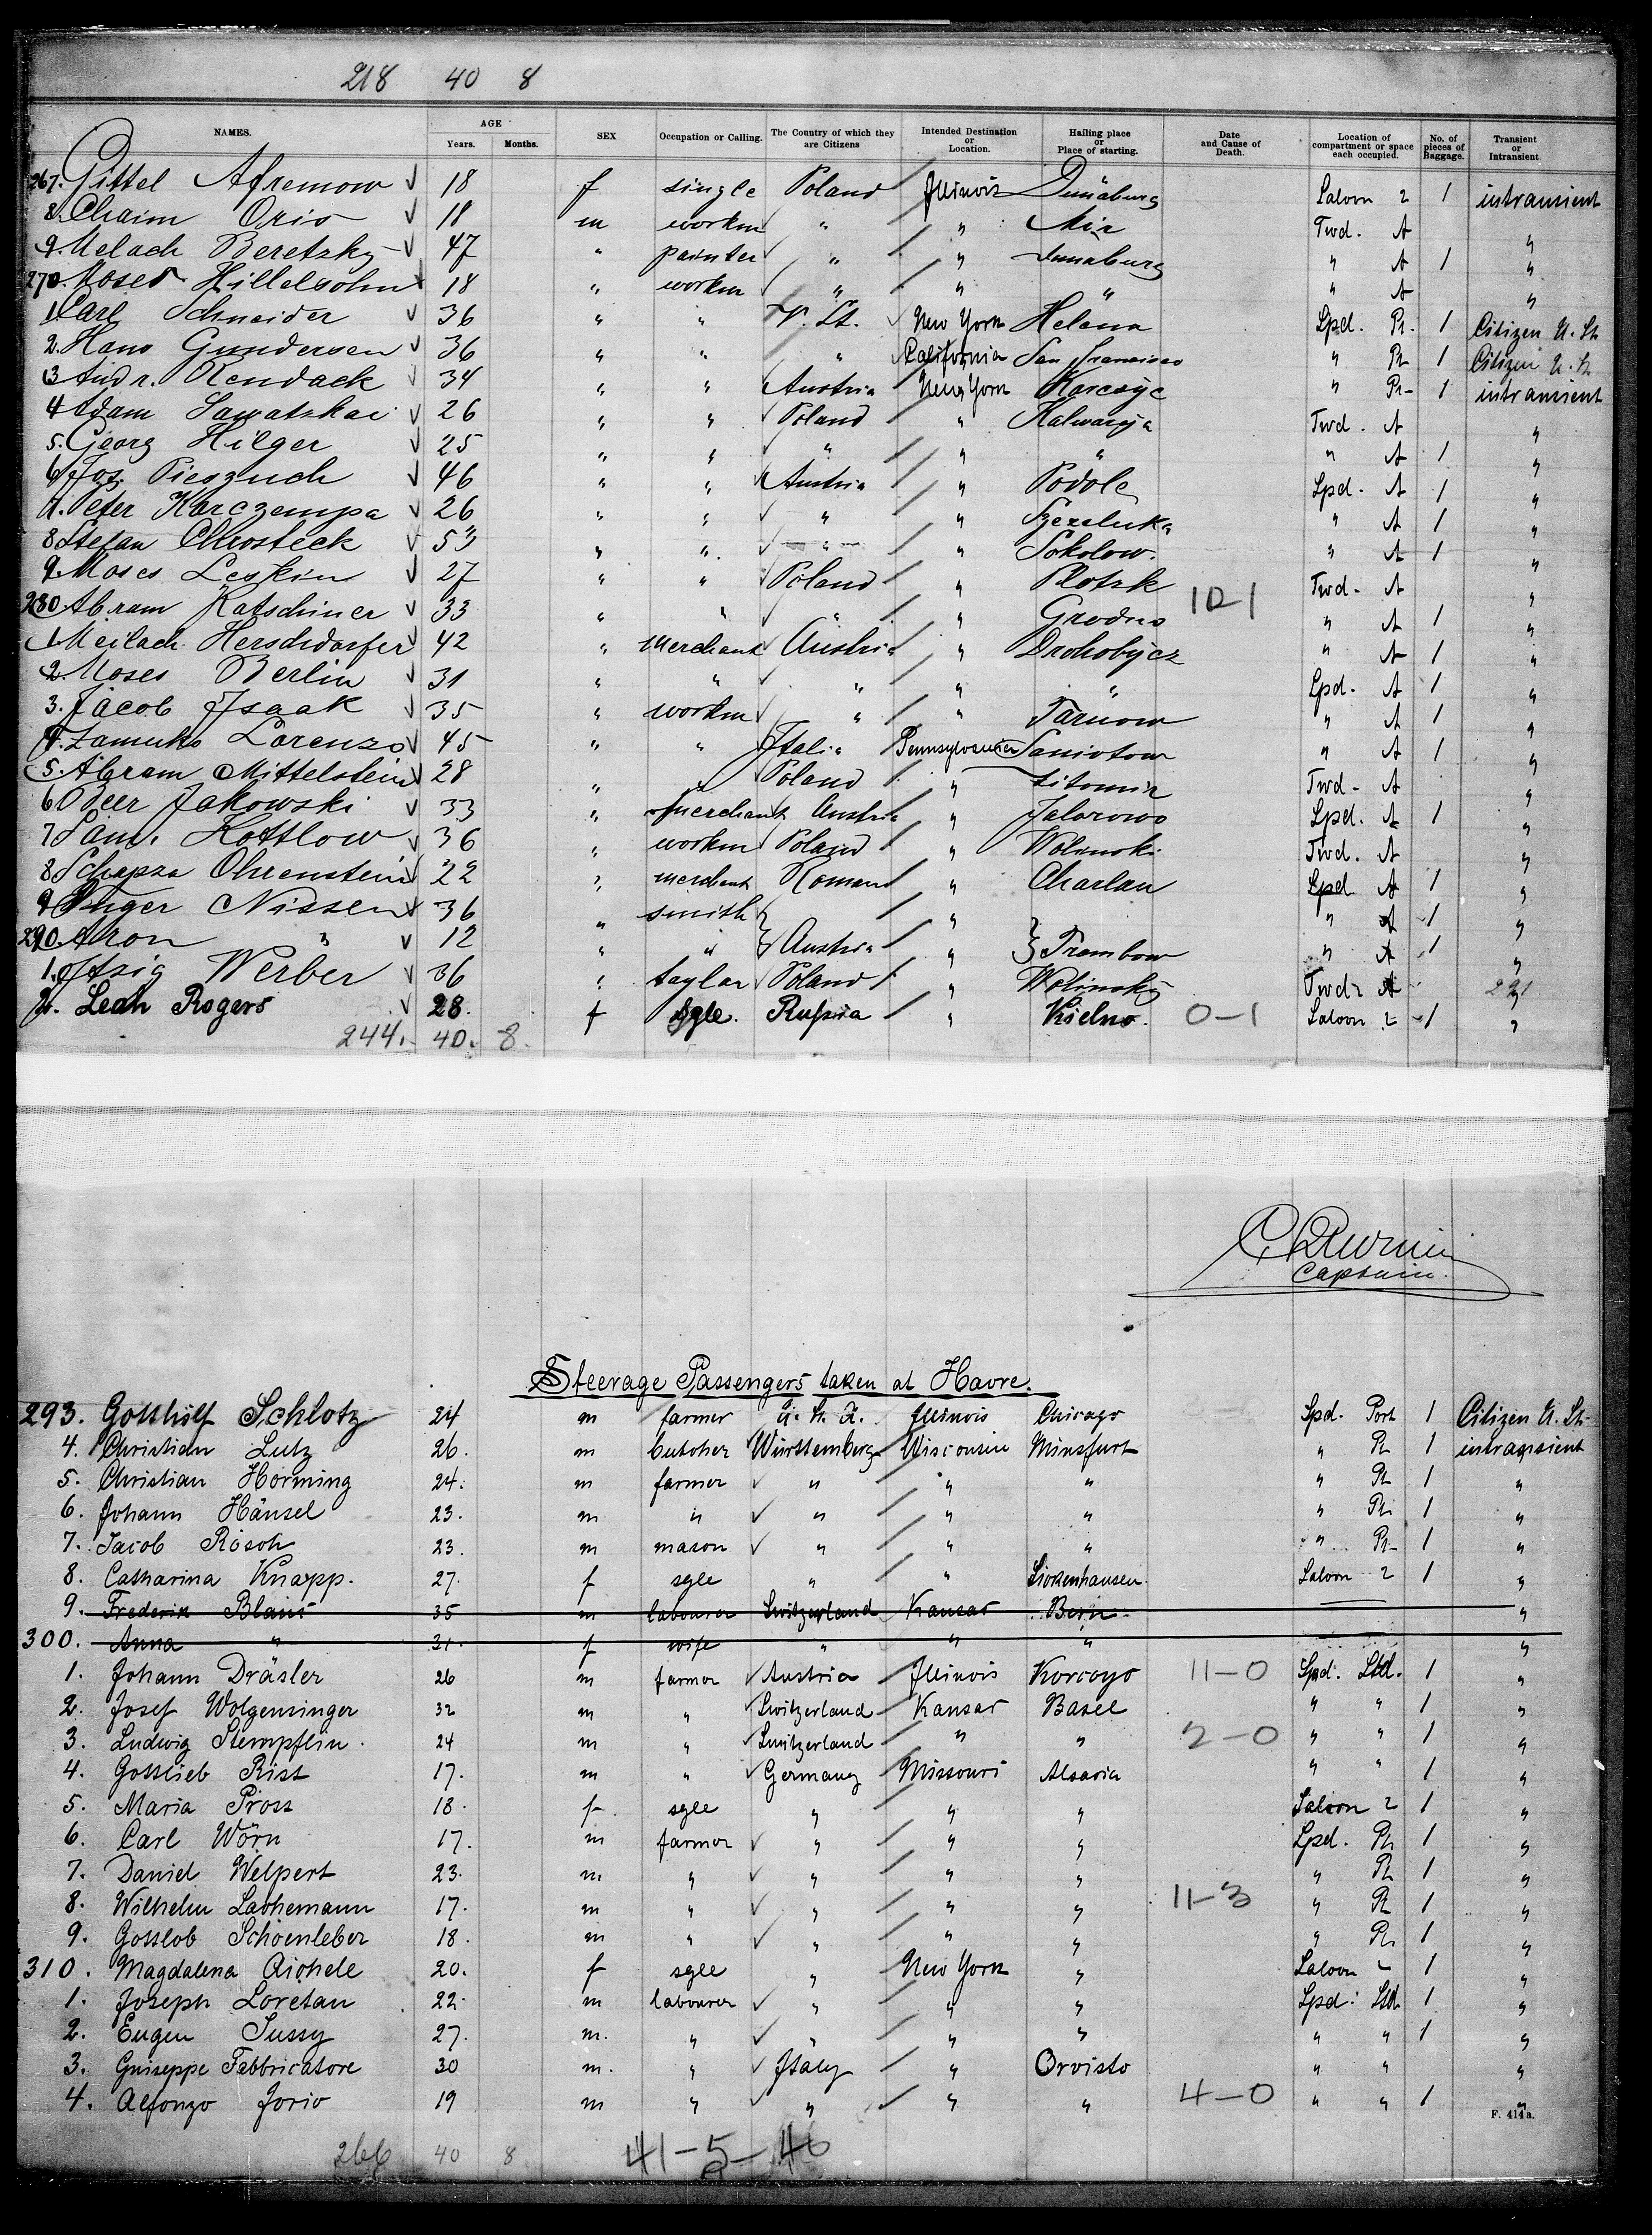 218 40 8
NAMES. AGE Years. Months. SEX Occupation or Calling. The Country of which they are Citizens Intended Destination or Location. Hailing place or Place of starting. Date and Cause of Death. Location of compartment or space each occupied. No. of pieces of Baggage. Transient or Intransient.
267. Gittel Afremow 18 f single Poland Illinois Dunaburg Saloon 2 1 intransient
8. Chaim Oris 18 m workm " " Mir Twd. A "
9. Melach Beretzky 47 " painter " " Dunaburg " A 1 "
270. Moses Hillelsohn 18 " workm " " " " A "
1. Carl Schneider 36 " " V. St. New York Helena Spd. Pr. 1 Citizen U. St.
2. Hans Gundersen 36 " " " California San Francisco " Pr. 1 Citizen U. St.
3 Andr. Rendack 34 " " Austria New York Karcsyc " Pr. 1 intransient
4 Adam Sawatzkai 26 " " Poland " Kalwarya Twd. A "
5. Georg Hilger 25 " " " " " " A 1 "
6 Jos. Pieszuch 46 " " Austria " Podole Spd. A 1 "
7. Peter Karczempa 26 " " " " " A 1 "
8 Stefan Chrosteck 53 " " " " Sokolow. " A 1 "
9. Moses Leskin 27 " " Poland " Plotzk Twd. A "
10-1
280. Abram Katschiner 33 " " " " Grodno " A 1 "
1. Meilach Herschdorfer 42 " merchant Austria " Drohobycz " A 1 "
2. Moses Berlin 31 " " " " " Spd. A 1 "
3. Jacob Isaak 35 " workm " " Tarnow " A 1 "
4. Zamuko Lorenzo 45 " " Italia Pennsylvanien Saniotow " A 1 "
5. Abram Mittelstein 28 " " Poland " Sitomir Twd. A "
6 Beer Jakowski 33 " merchant Austria " Jalorowo Spd. A 1 "
7 Sam. Kottlow 36 " workm Poland " Wolinski Twd. A "
8 Schapsa Ohrenstein 22 " merchant Roman " Charlau Spd A 1 "
9 Unger Nissen 36 " smith " " A 1 "
290. Aron " 12 " " Austria " Trembow " A 1 "
1. Itzig Werber 36 " taylor Poland " Wolinsky Twd. A 291
2. Leah Rogers 28. f sgle. Russia " Kielno. 0-1 Saloon 2 1 "
244. 40. 8.
Captain.
Steerage Passengers taken at Havre.
293. Gotthilf Schlotz 24 m farmer U. St. A. Illinois Chicago Spd. Port 1 Citizen U. St.
4. Christian Lutz 26. m butcher Württemberg Wisconsin Minsfurt " Pr. 1 intransient
5. Christian Horming 24. m farmer " " " " Pr. 1 "
6. Johann Hänsel 23. m " " " " " Pr. 1 "
7. Jacob Rösch 23. m mason " " " " Pr. 1 "
8. Catharina Knapp. 27. f sgle " " Sickenhausen. Saloon 2 1 "
9. Frederik Blaus 35 m labourer Switzerland Kansas Bern. "
300. Anna " 31. f wife " " " "
1. Johann Dräsler 26 m farmer Austria Illinois Korcoyo 11-0 Spd. Stbd. 1 "
2. Josef Wolgensinger 32 m " Switzerland Kansas Basel " " 1 "
3. Ludwig Stempflin. 24 m " Switzerland " " 2-0 " " 1 "
4. Gottlieb Rist 17. m " Germany Missouri Alsacia " " 1 "
5. Maria Pross 18. f. sgle " " " Saloon 2 1 "
6. Carl Wörn 17. m farmer " " " Spd. Pr. 1 "
7. Daniel Welpert 23. m. " " " " " Pr. 1 "
8. Wilhelm Lachemann 17. m " " " " 11-3 " Pr. 1 "
9. Gottlob Schoenleber 18. m " " " " " Pr. 1 "
310. Magdalena Aichele 20. f sgle " New York " Saloon 2 1 "
1. Joseph Loretan 22. m labourer " " " Spd. Stbd. 1 "
2. Eugen Sussy 27. m. " " " " " " 1 "
3. Guiseppe Fabbricatore 30 m. " Italy " Orvisto " " "
4. Alfonzo Jorio 19 m " " " " 4-0 " " 1 "
F. 414a.
266 40 8 41-5-46